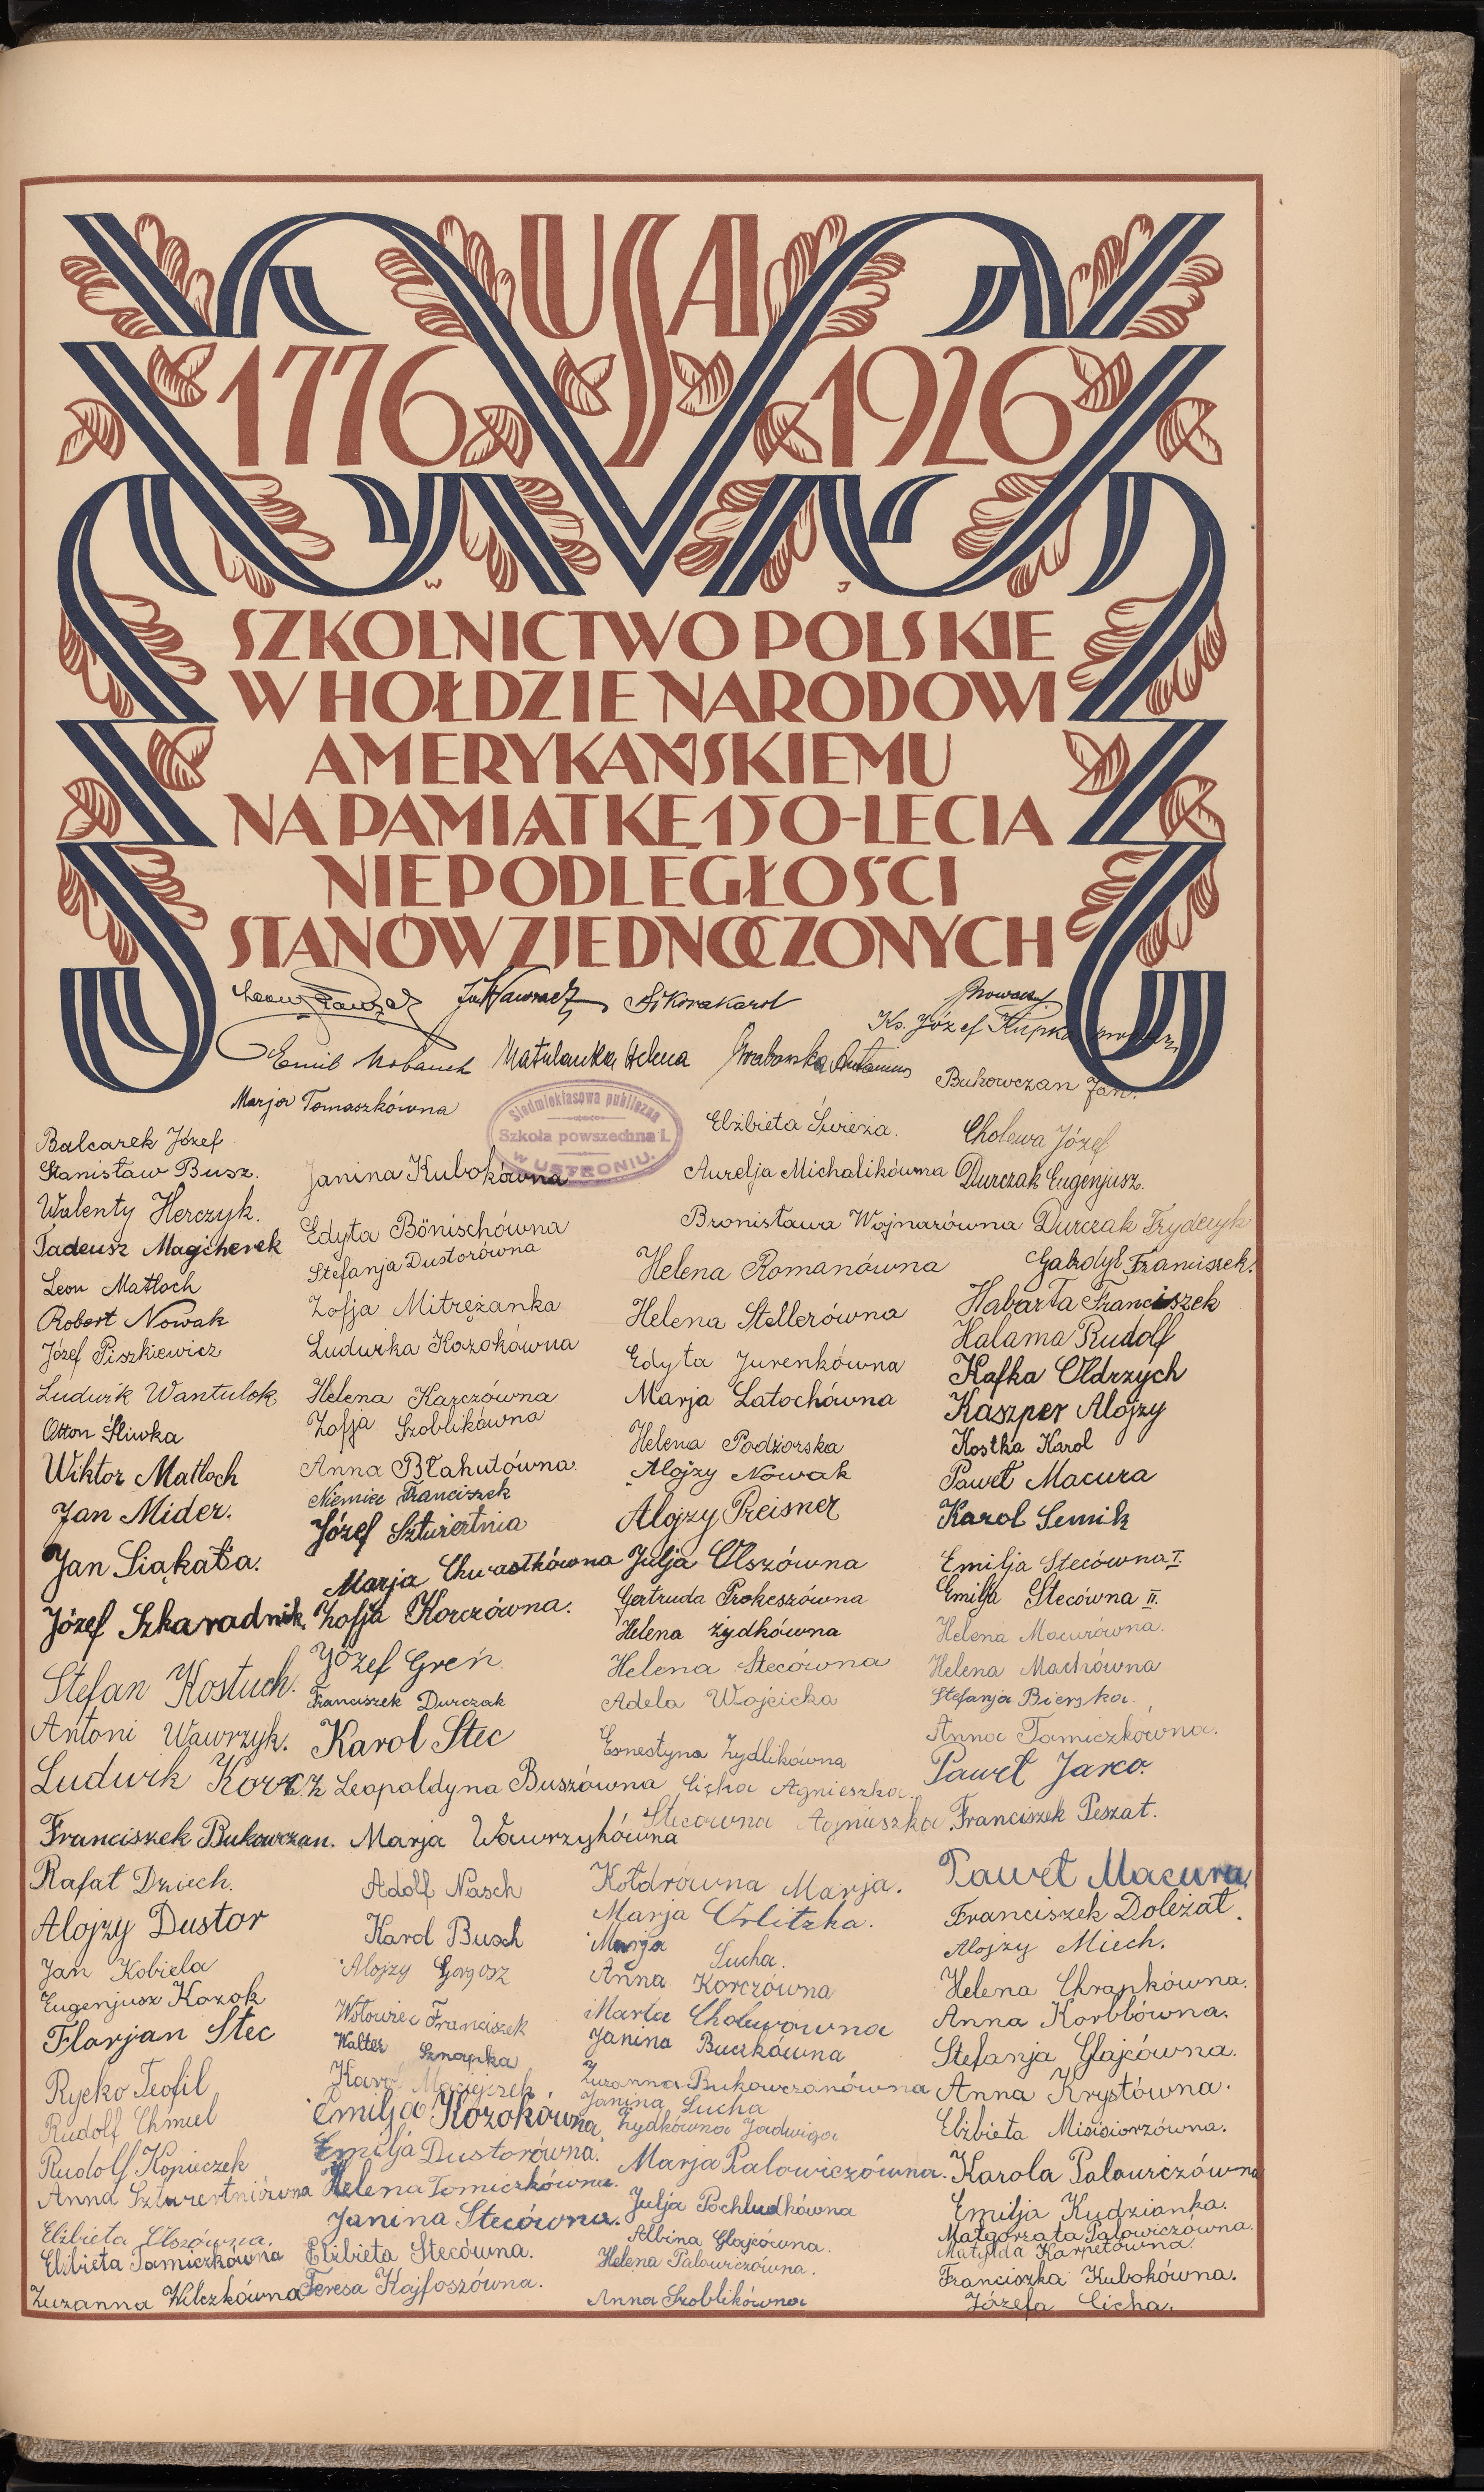 USA
1776 1926
W J
SZKOLNICTWO POLSKIE
W HOŁDZIE NARODOWI
AMERYKAŃSKIEMU
NA PAMIĄTKĘ 150-LECIA
NIEPODLEGŁOŚCI
STANÓW ZJEDNOCZONYCH
Sikora Karol
Ks. Józef Kupka
Emil
Helena
Bukowczan Jan.
Marja Tomaszkówna
Siedmioklasowa publiczna
Szkoła powszechna I.
W USTRONIU.
Balcarek Józef
Stanisław Busz.
Walenty Herczyk.
Tadeusz Magiherek
Leon Matloch
Robert Nowak
Józef Piszkiewicz
Ludwik Wantulok
Otton Śliwka
Wiktor Matloch
Jan Mider.
Jan Siąkała.
Józef Szkaradnik.
Stefan Kostuch.
Antoni Wawrzyk.
Ludwik Korcz
Franciszek Bukowczan.
Rafał Dziech.
Alojzy Dustor
Jan Kobiela
Eugenjusz Kozok
Florjan Stec
Rycko Teofil
Rudolf Chmiel
Rudolf Kopieczek
Anna Szturcertniówna
Elżbieta Olszówna.
Elżbieta Tomiczkówna
Zuzanna Wilczkówna
Janina Kubokówna
Edyta Bönischówna
Stefanja Dustorówna
Zofja Mitrężanka
Ludwika Kozokówna
Helena Karczówna
Zofja Szoblikówna
Anna Błahutówna.
Niemiec Franciszek
Józef Szturertnia
Marja Chwastkówna
Zofja Korczówna.
Józef Greń.
Franciszek Durczak
Karol Stec
Leopoldyna Buszówna
Marja Wawrzykówna
Adolf Nasch
Karol Busch
Alojzy Gorgosz
Wołowiec Franciszek
Walter Sznapka
Karol Maciejczek
Emilja Kozokówna
Emilja Dustorówna.
Helena Tomiczkówna.
Janina Stecówna.
Elżbieta Stecówna.
Teresa Kajfoszówna.
Elżbieta Świeża.
Aurelja Michalikówna
Bronisława Wojnarówna
Helena Romanówna
Helena Stellerówna
Edyta Jurenkówna
Marja Latochówna
Helena Podżorska
Alojzy Nowak
Alojzy Preisner
Julja Olszówna
Gertruda Prokeszówna
Helena Żydkówna
Helena Stecówna
Adela Wojcicka
Ernestyna Zydlikówna
Cicha Agnieszka.
Stecówna Agnieszka
Kołdrówna Marja.
Marja Urlitzka.
Marja Sucha.
Anna Korczówna
Marta Cholewówna
Janina Buczkówna
Zuzanna Bukowczanówna
Janina Sucha
Żydkówna Jadwiga
Marja Palowiczówna.
Julja Pochludkówna
Albina Glajcówna.
Helena Palowiczówna.
Anna Szoblikówna
Cholewa Józef
Durczak Eugenjusz.
Durczak Fryderyk
Gabzdyl Franciszek.
Habarta Franciszek
Halama Rudolf
Kafka Oldrzych
Kaszper Alojzy
Kostka Karol
Paweł Macura
Karol Semik
Emilja Stecówna I.
Emilja Stecówna II.
Helena Macurówna.
Helena Machówna
Stefanja Bierska.
Anna Tomiczkówna.
Paweł Jarco.
Franciszek Peszat.
Paweł Macura
Franciszek Doleżał.
Alojzy Miech.
Helena Chrapkówna.
Anna Korblówna.
Stefanja Glajcówna.
Anna Krystówna.
Elżbieta Misisiorzówna.
Karola Palowiczówna
Emilja Kudzianka.
Małgorzata Palowiczówna.
Matylda Karpetówna.
Franciszka Kubokówna.
Józefa Cicha.